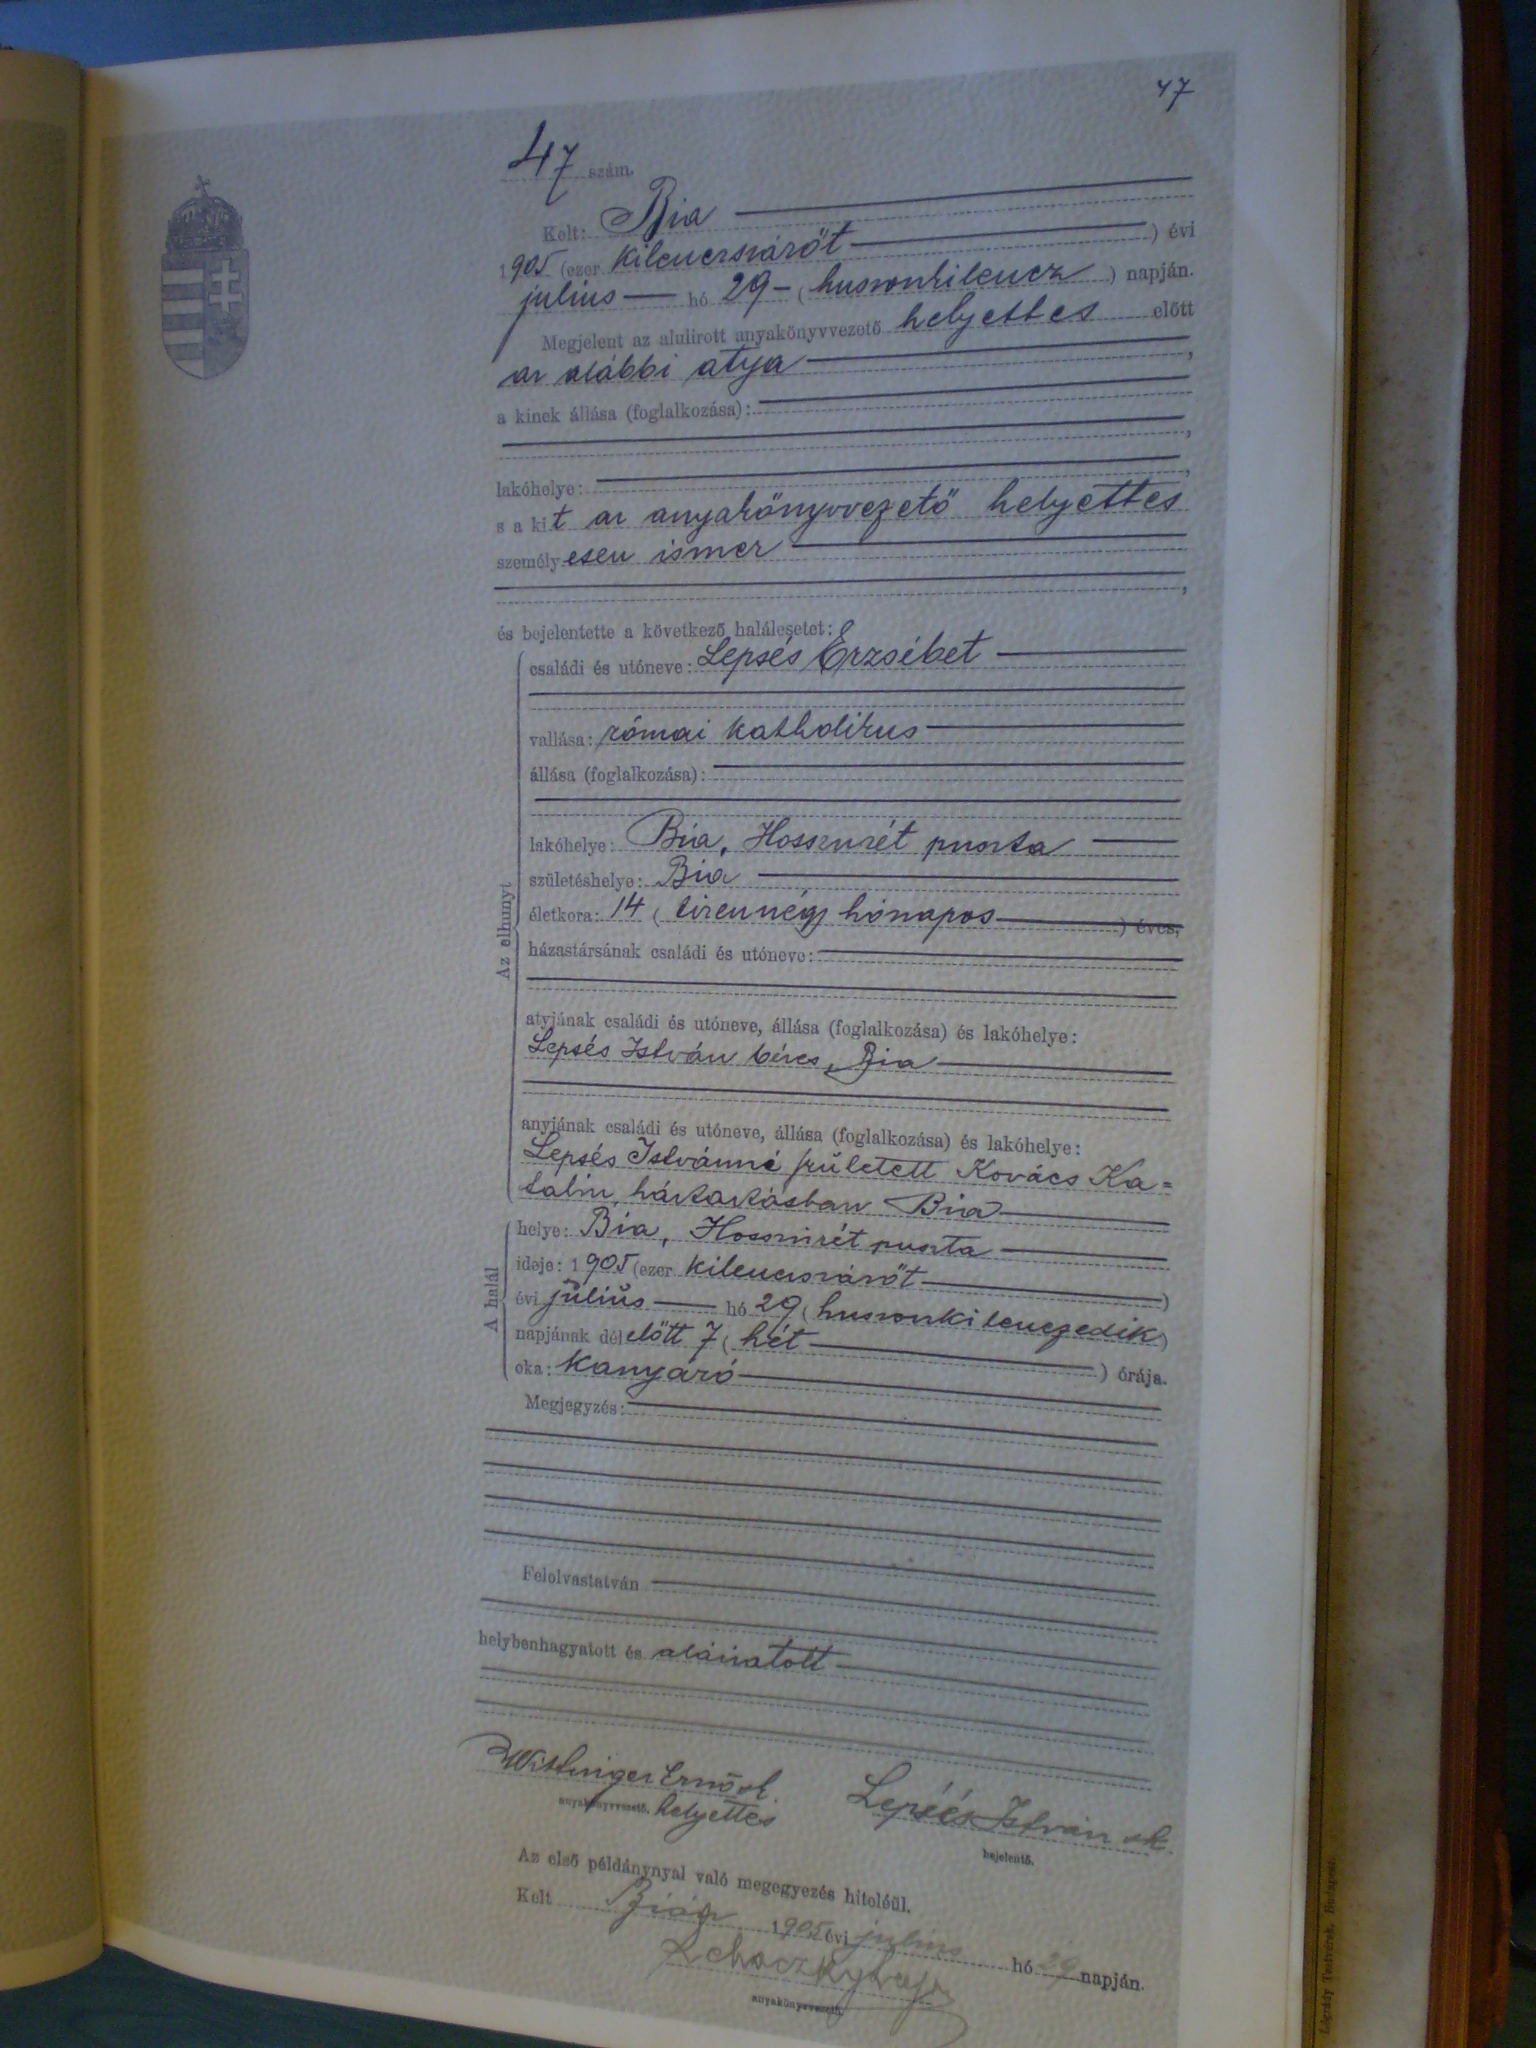 47
47 szám.
Kelt: Bia
1905 (ezer kilenczszázöt ) évi
julius hó 29 (huszonkilencz ) napján.
Megjelent az alulirott anyakönyvvezető helyettes előtt
az alábbi atya ,
a kinek állása (foglalkozása):
,
lakóhelye: ,
s a kit az anyakönyvvezető helyettes
személyesen ismer
,
és bejelentette a következő halálesetet:
Az elhunyt
családi és utóneve: Lepsés Erzsébet
vallása: római katholikus
állása (foglalkozása):
lakóhelye: Bia, Hosszurét puszta
születéshelye: Bia
életkora: 14 (tizennégy hónapos ) éves,
házastársának családi és utóneve:
atyjának családi és utóneve, állása (foglalkozása) és lakóhelye:
Lepsés István béres, Bia
anyjának családi és utóneve, állása (foglalkozása) és lakóhelye:
Lepsés Istvánné született Kovács Ka=
talin, háztartásban Bia
A halál
helye: Bia, Hosszurét puszta
ideje: 1905 (ezer kilenczszázöt )
évi július hó 29 (huszonkilenczedik)
napjának délelőtt 7 (hét ) órája.
oka: kanyáró
Megjegyzés:
Felolvastatván
helybenhagyatott és aláiratott
Wittinger Ernő sk. Lepsés István sk.
anyakönyvvezető. helyettes bejelentő.
Az első példánynyal való megegyezés hiteléül.
Kelt Bián 1905 évi julius hó 29 napján.
anyakönyvvezető.
Légrády Testvérek, Budapest.